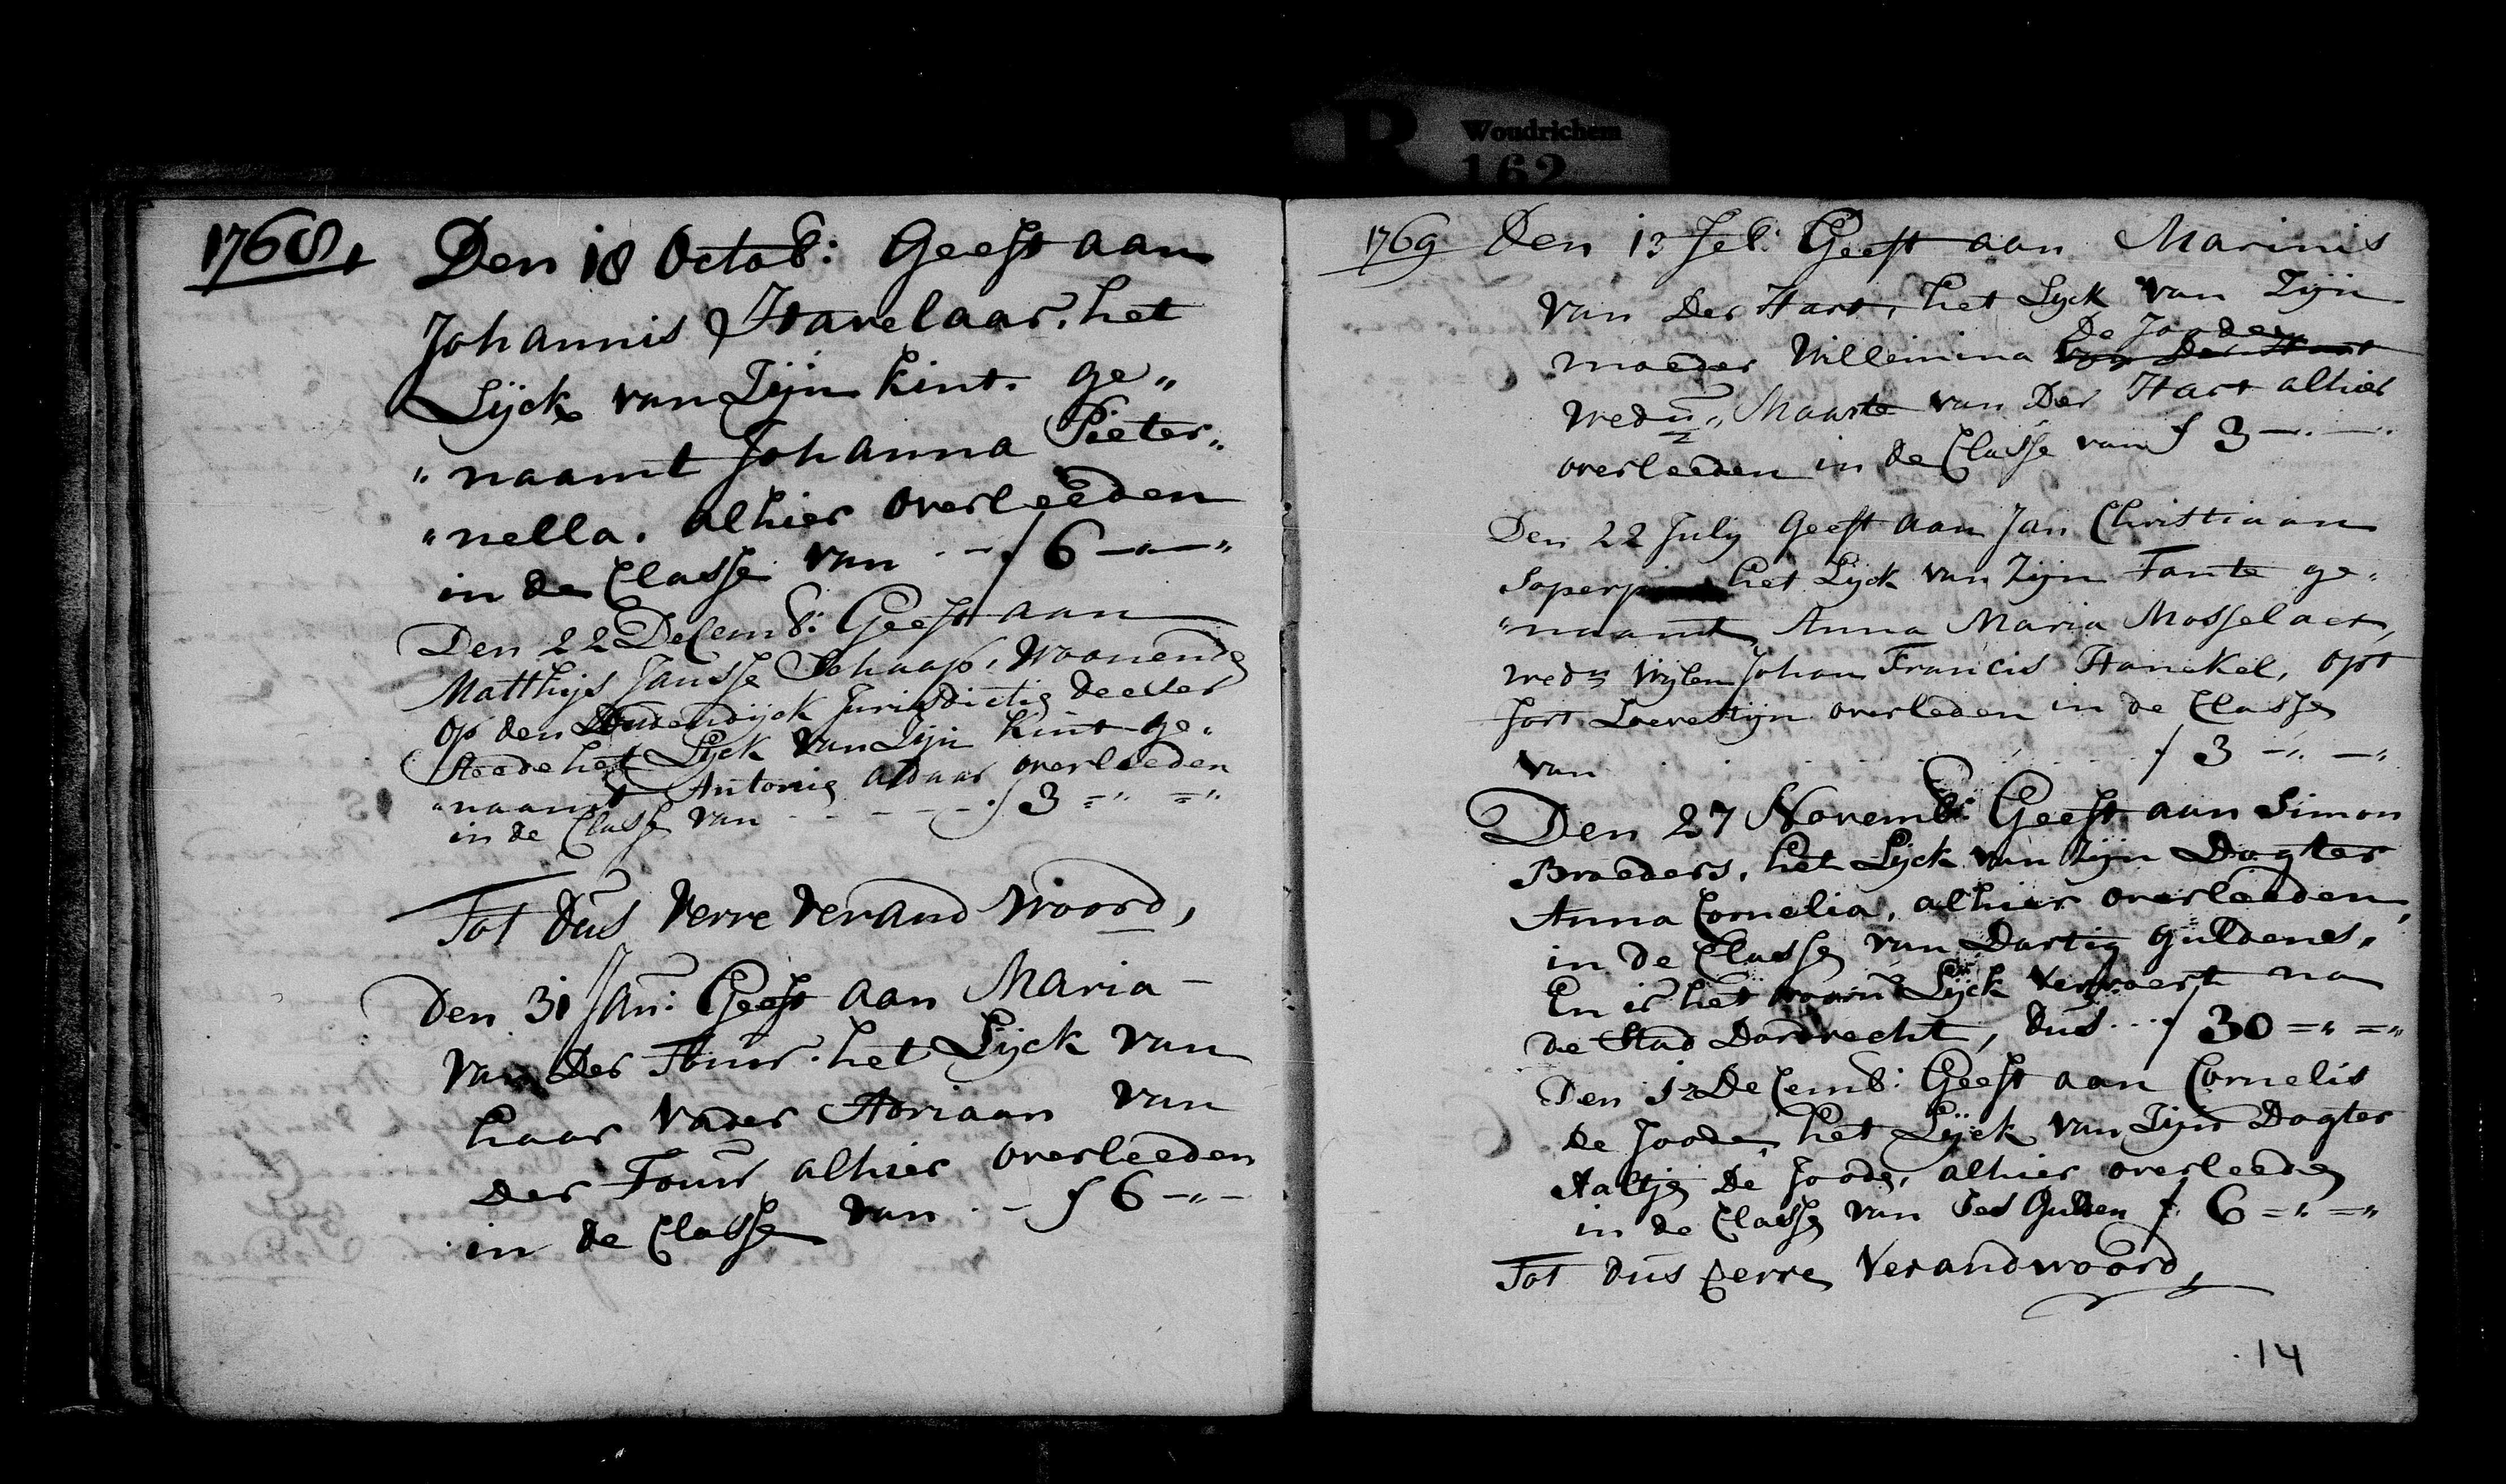 R Woudrichem
162
1768,
Den 18 Octob: Geeft aan
Johannis Havelaar, het
Lijck van Zijn kint. ge„
„naamt Johanna Pieter„
„nella. alhier overleeden
in de Classe van . - f 6 -„-„
Den 22 Decemb: Geeft aan
Matthijs Jansse Schaap, Woonende
op den Oudendijck Jurisdictie deeser
Steede het Lijck van Zijn kint ge„
„naamt Antonie aldaar overleeden
in de Classe van - - - - f 3 =„ =„
Tot dus verre verand woord,
Den 31 Jan: Geeft aan Maria
van der Four. het Lijck van
haar vader Adriaan van
der Four alhier overleeden
in de Classe van . - f 6 -„-
1769 Den 13 Feb: Geeft aan Marinis
van der Hart, het Lijck van Zijn
moeder Willemina De Joode
van der Hart
wedu„ Maarte van der Hart alhier
overleeden in de Classe van f 3 -„-„
Den 22 July Geeft aan Jan Christiaan
het Lijck van Zijn Tante ge„
„naamt Anna Maria Mosselaer,
wedu wijlen Johan Francis Hanekel, opt
fort Loevestijn overleden in de Classe
van . . . . . . f 3 -„ -„
Den 27 Novemb: Geeft aan Simon
Broeders, het Lijck van Zijn Dogter
Anna Cornelia, alhier overleeden,
in de Classe van Dartig guldens,
En is het voorn Lijck vervoert na
de Stad Dordrecht, dus ... f 30 =„ =„
Den 12 Decemb: Geeft aan Cornelis
de Joode, het Lijck van Zijn Dogter
Aaltje De Joode, alhier overleede
in de Classe van Ses Gulden f 6 =„ =„
Tot dus verre Verandwoord,
14